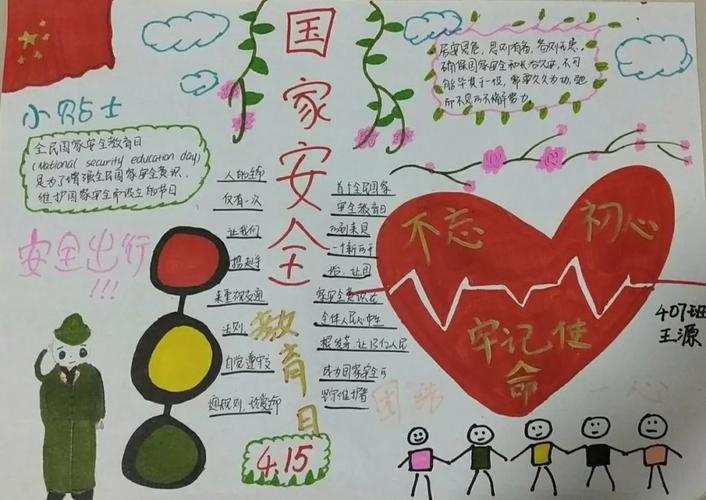 国家安全
教育日
4.15
小贴士
全民国家安全教育日
(National security education day)
是为了增强全民国家安全意识,
维护国家安全而设立的节日
安全出行
!!!
居安思危,思则有备,有备无患。
确保国家安全和长治久安,不可
能毕其于一役,需要久久为功,驰
而不息不懈努力。
仅有一次
让我们
携起手
来重视交通
法则
自觉遵守交
通规则,珍爱
首个全民国家
安全教育日
的到来是
一个新的开
始,让国
家安全意识在
全体人民心中生
根发芽,让13亿人民
成为国家安全
坚守维护者
不忘 初心
牢记使
命
407班
王源
团结
一心